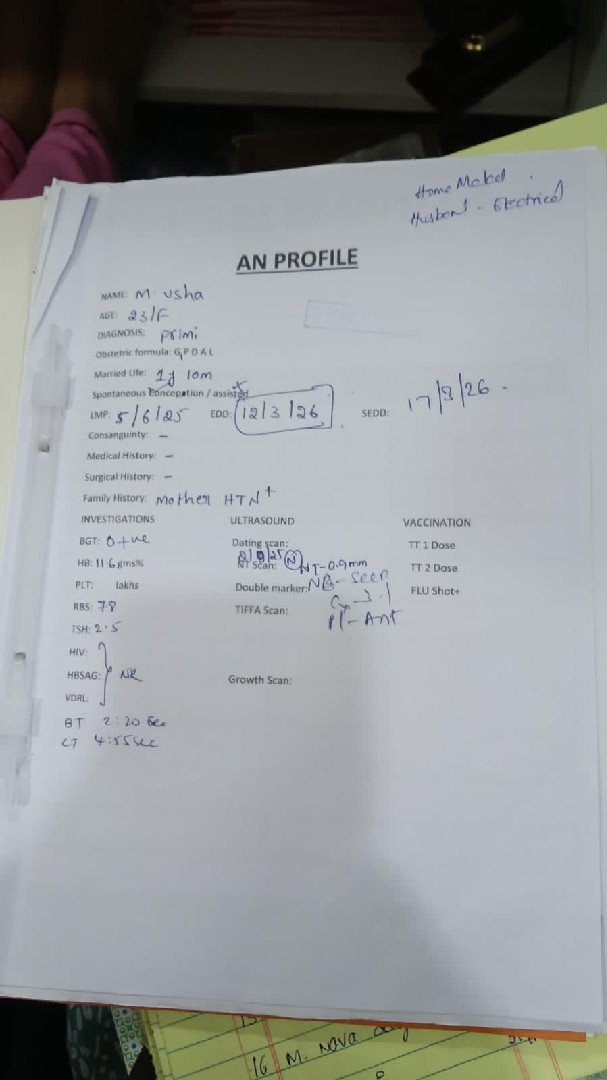 Home Maker.
Husband - Electrical
AN PROFILE
NAME: M. Usha
AGE: 23/F
DIAGNOSIS: Primi
Obstetric formula: G1P0A0L
Married Life: 1y 10m
Spontaneous Conception / assisted
LMP: 5/6/25 EDD: 12/3/26 SEDD: 17/3/26.
Consanguinty: –
Medical History: –
Surgical History: –
Family History: Mother HTN+
INVESTIGATIONS ULTRASOUND VACCINATION
BGT: O+ve Dating scan: TT 1 Dose
HB: 11.6 gms% NT Scan: (N) NT-0.9mm TT 2 Dose
PLT: lakhs Double marker: NB - seen FLU Shot+
RBS: 78 TIFFA Scan: Pl - Ant
TSH: 2.5
HIV:
HBSAG: NR Growth Scan:
VDRL:
BT 2:20 Sec
CT 4:55 sec
16 M. nava